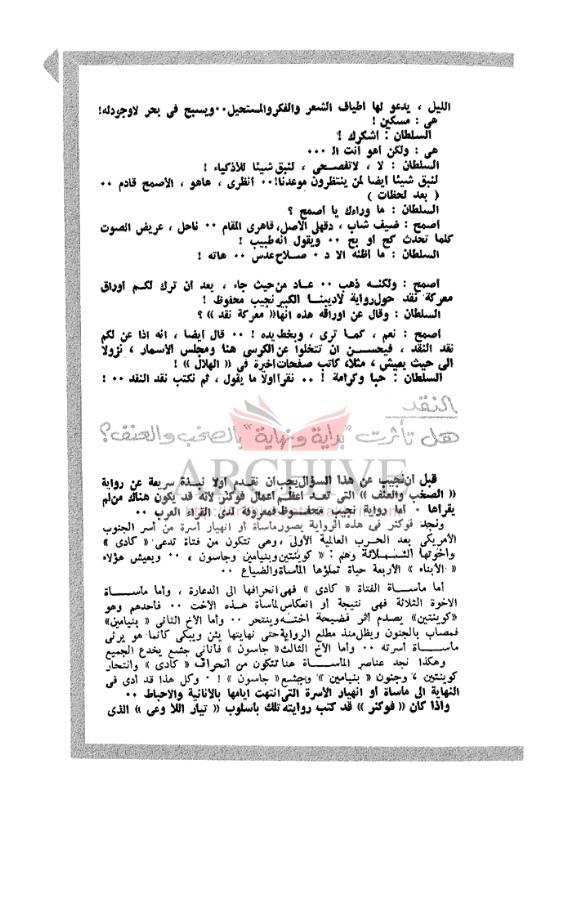 الليل ، يدعو لها اطياف الشعر والفكر والمستحيل٠٠ويسبح في بحر لاوجودله!
هى : مسكين !
السلطان : اشكرك !
هى : ولكن اهو أنت الـ ٠٠٠
السلطان : لا ، لاتفصـحى ، لنبق شيئا للأذكياء !
لنبق شيئا ايضا لمن ينتظرون موعدنا!٠٠ أنظرى ، هاهو ، الأصمح قادم ٠٠
( بعد لحظات )
السلطان : ما وراءك يا أصمح ؟
اصمح : ضيف شاب ، دقهلى الأصل، قاهرى المقام ٠٠ ناحل ، عريض الصوت
كلما تحدث كح أو بح ٠٠ ويقول أنه طبيب !
السلطان : ما اظنه الا د ٠ صـلاح عدس ٠٠ هاته !
اصمح : ولكنـه ذهب ٠٠ عـاد من حيث جاء ، بعد أن ترك لكـم أوراق
معركة نقد حول رواية لاديبنـا الكبير نجيب محفوظ !
السلطان : وقال عن أوراقه هذه انها« معركة نقد » ؟
اصمح : نعم ، كمـا ترى ، وبخط يده ! ٠٠ قال ايضا ، انه اذا عن لكم
نقد النقد ، فيحسـن ان تتخلوا عن الكرسى هنا ومجلس الأسمار ، نزولا
الى حيث يعيش ، مثلا، كاتب صفحات أخيرة فى « الهلال » !
السلطان : حبا وكرامة ! ٠٠ نقرا أولا ما يقول ، ثم نكتب نقد النقد ٠٠ !
النقد
هل تأثرت "بداية ونهاية" بالصخب والعنف؟
ARCHIVE
قبل أن نجيب عن هذا السؤال يجب ان نقـدم أولا نبـذة سريعة عن رواية
« الصخب والعنف » التى تعـد اعظـم أعمال فوكنر لأنه قد يكون هناك من لم
يقرأها ٠ أما رواية نجيب محفـوظ فمعروفة لدى القراء العرب ٠٠
ونجد فوكنر فى هذه الرواية يصور مأساة أو انهيار أسرة من أسر الجنوب
الأمريكى بعد الحرب العالمية الأولى ، وهى تتكون من فتاة تدعى « كادى »
وأخوتها الثـلاثة وهم : « كوينتين وبنيامين وجاسون ، ٠٠ ويعيش هؤلاء
« الأبناء » الأربعة حياة تملؤها المأساة والضياع ٠٠
أما مأسـاة الفتاة « كادى » فهى انحرافها الى الدعارة ، وأما مأسـاة
الاخوة الثلاثة فهى نتيجة أو انعكاس لمأساة هـذه الأخت ٠٠ فأحدهم وهو
«كوينتين» يصدم أثر فضيحة اختـه وينتحر ٠٠ وأما الأخ الثانى « بنيامين»
فمصاب بالجنون ويظل منذ مطلع الرواية حتى نهايتها يئن ويبكى كأنما هو يرثى
مأسـاة أسرته ٠٠ وأما الأخ الثالث« جاسون » فأنانى جشع يخدع الجميع
وهكذا نجد عناصر المأسـاة هنا تتكون من انحراف « كادى » وانتحار
كوينتين ، وجنون « بنيامين » وجشع« جاسون » ! ٠ وكل هذا قد أدى فى
النهاية الى مأساة أو انهيار الأسرة التى انتهت أيامها بالأنانية والأحباط ٠٠
واذا كان « فوكنر » قد كتب روايته تلك بأسلوب « تيار اللا وعى » الذى